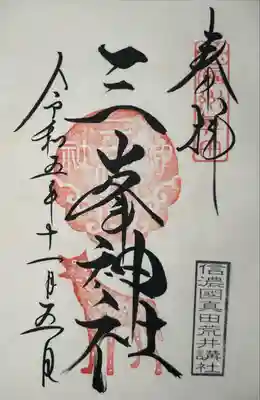 奉拝
信濃國真田荒井講社
三峯神社
令和五年十一月五日